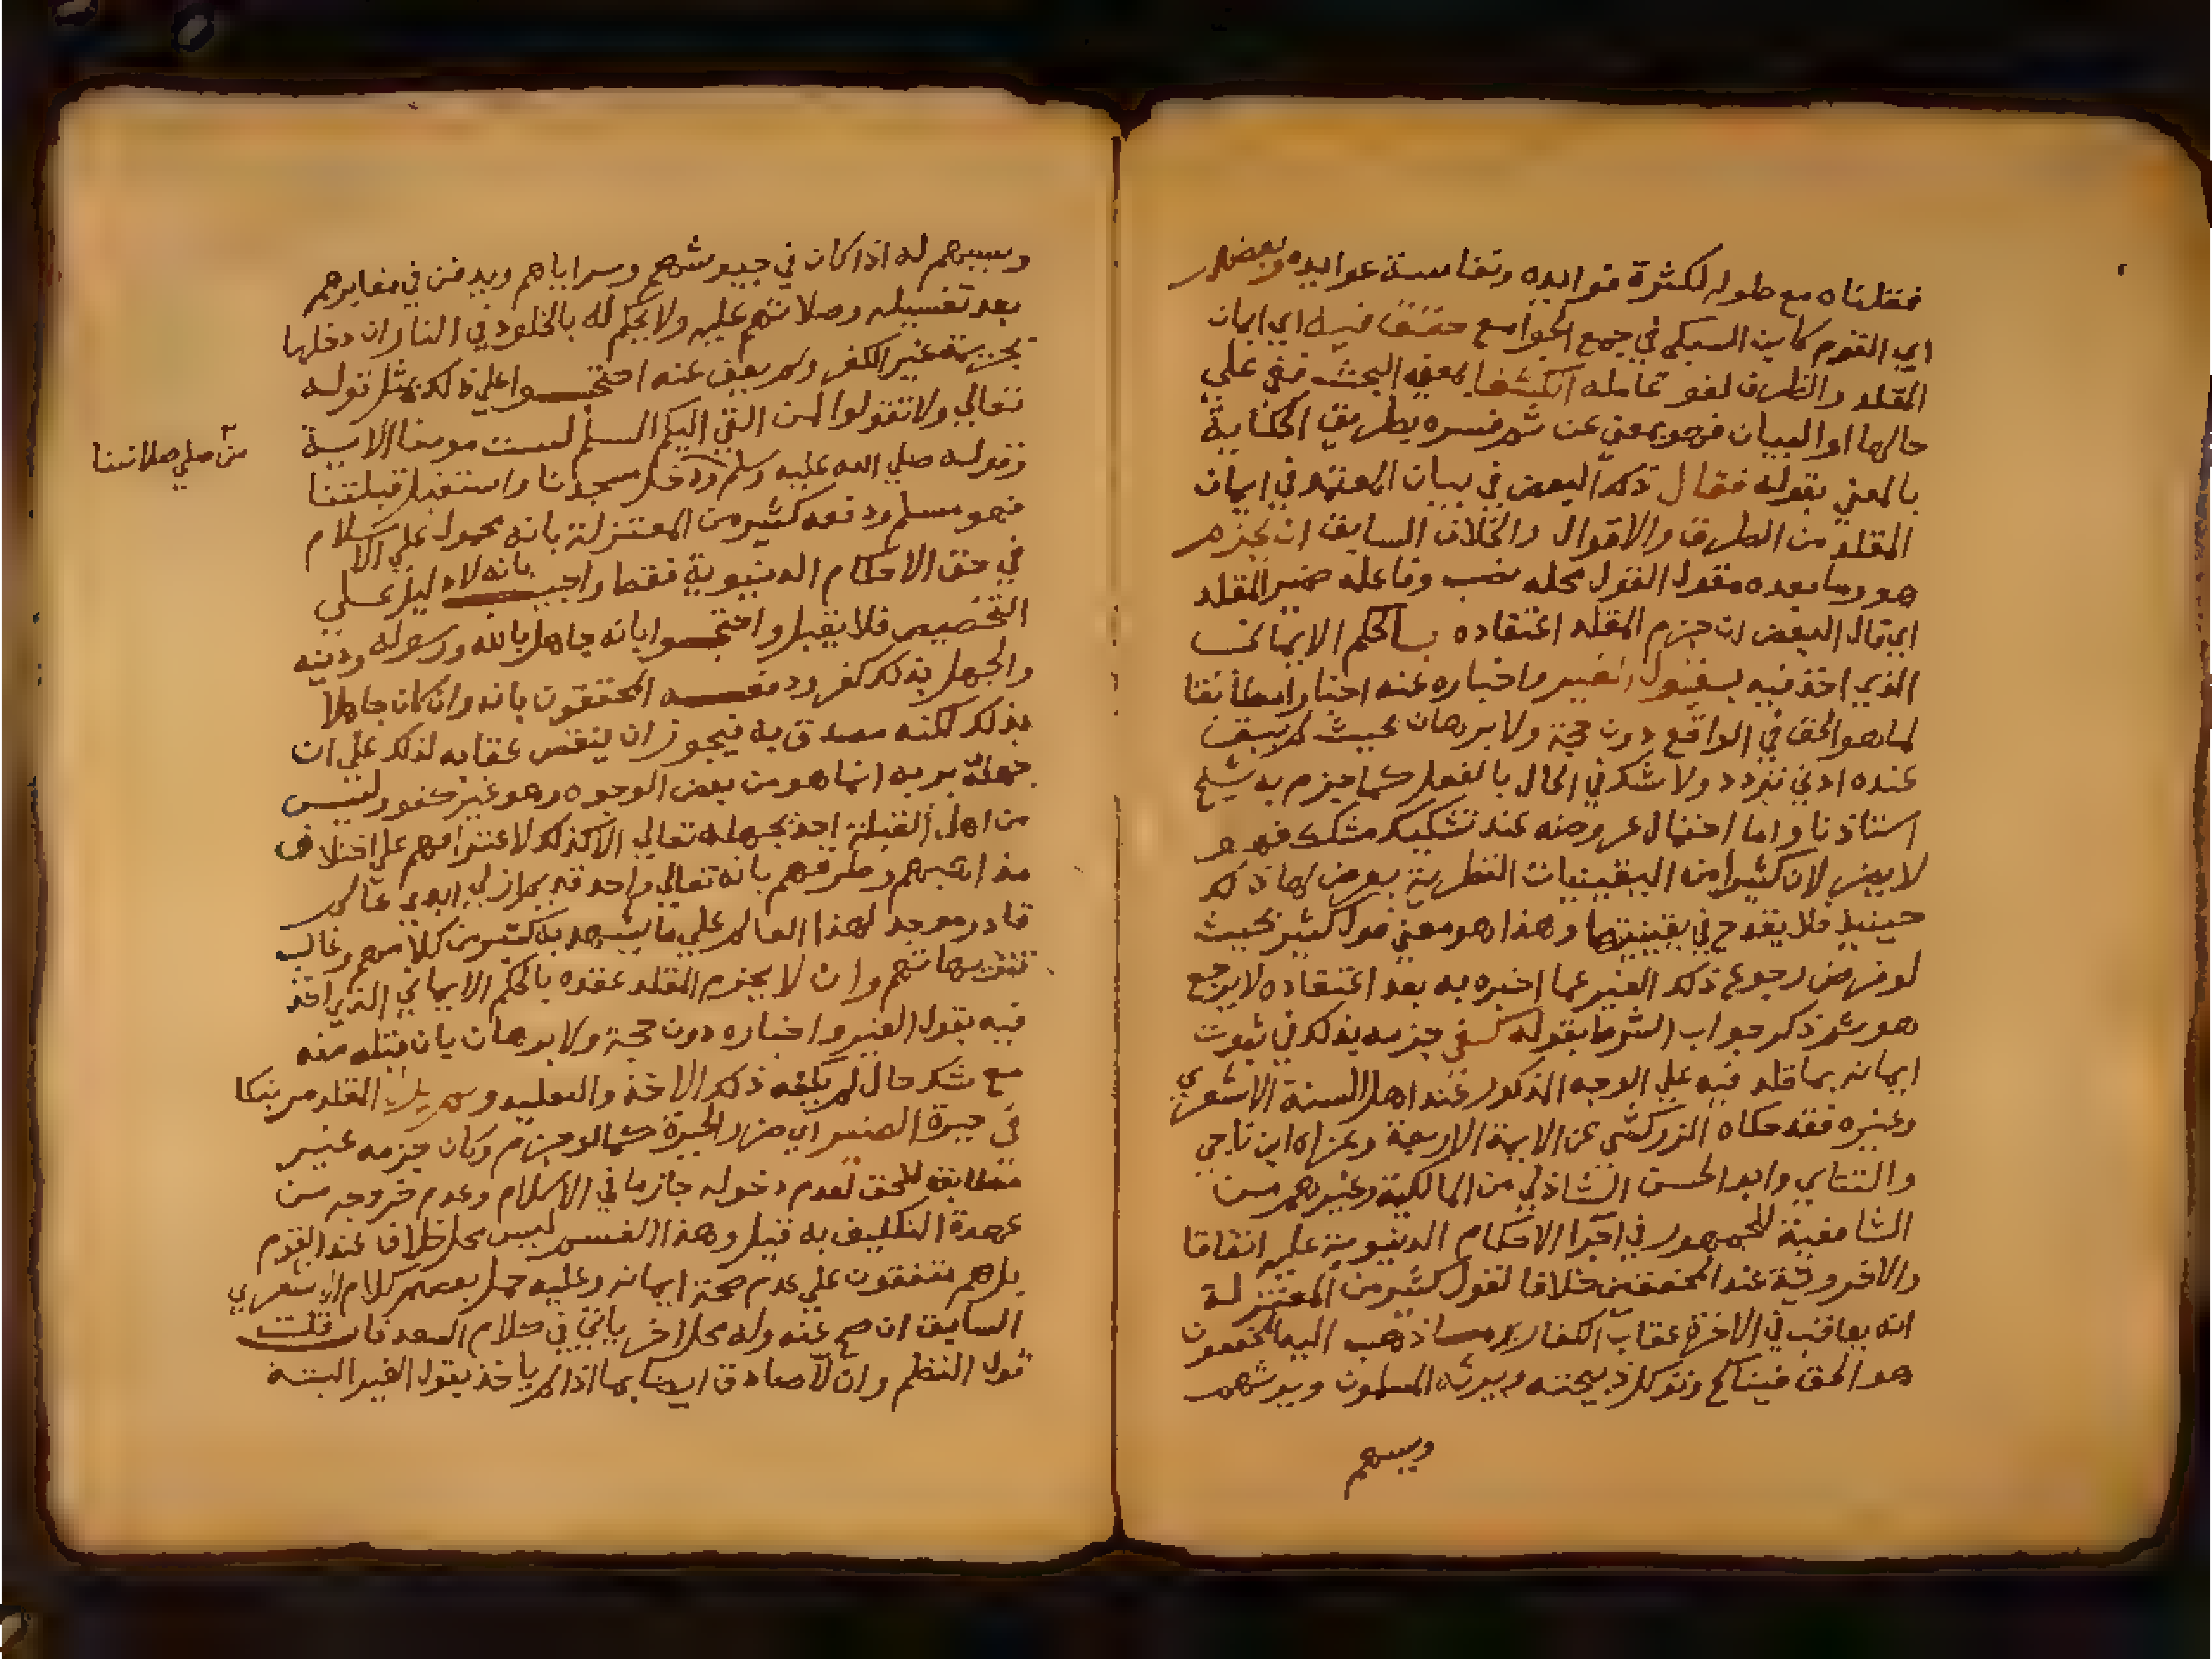 فنقلناه مع طوله لكثرة فوايده ونفاسة عوايده وبعضهم
اي القوم كابن السبكي في جمع الجوامع حقق فيه اي ايمان
المقلد والظرف لغو عامله الكشفا بمعني البحث ففي علي
حالها او البيان فهو بمعني عن ثم فسره بطريق الحكاية
بالمعني بقوله فقال ذكر البعض في بيان المعتمد في ايمان
المقلد من الطرق والاقوال والخلاف السابق ان يجزم
هو وما بعده مقول القول محله نصب وفاعله ضمير المقلد
اي قال البعض ان جزم المقلد اعتقاده بالحكم الايماني
الذي اخذ فيه بقول الغير واخباره عنه اخبارا مطابقا
لما هو الحق في الواقع دون حجة ولا برهان بحيث لم يبق
عنده ادني تردد ولا شك في الحال بالفعل كما جزم به شيخ
استاذنا واما احتمال عروضه عند تشكيك مشكك فهو
لا يضر لان كثيرا من اليقينيات النظرية يعرض لها ذلك
حينيذ فلا يقدح في يقينيتها وهذا هو معني قول كثير بحيث
لو فرض رجوع ذلك الغير عما اخبره به بعد اعتقاده لا يرجع
هو ثم ذكر جواب الشرط بقوله كفي جزمه بذلك في ثبوت
ايمانه بما قلد فيه علي الوجه المذكور عند اهل السنة الاشعري
وغيره فقد حكاه الزركشي عن الايمة الاربعة وعزاه ابن ناجي
والتتاي وابو الحسن الشاذلي من المالكية وغيرهم من
الشافعية للجمهور في اجرا الاحكام الدنيوية عليه اتفاقا
والاخروية عند المحققين خلافا لقول كثير من المعتزلة
انه يعاقب في الاخرة عقاب الكفار وما ذهب اليه المحققون
هو الحق فيناكح وتوكل ذبيحته ويرثه المسلمون ويرثهم
ويسهم
ويسهم له اذا كان في جيوشهم وسراياهم ويدفن في مقابرهم
بعد تغسيله وصلاتهم عليه ولا يحكم له بالخلود في النار ان دخلها
بجريمة غير الكفر ولم يعف عنه احتجوا علي ذلك بمثل قوله
تعالي ولا تقولوا لمن القي اليكم السلم لست مومنا الاية
وقوله صلي الله عليه وسلم ودخل مسجدنا واستقبل قبلتنا
من صلي صلاتنا
فهو مسلم ودفعه كثير من المعتزلة بانه محمول علي الاسلام
في حق الاحكام الدنيوية فقط واجيب بانه لا دليل علي
التخصيص فلا يقبل واحتجوا بانه جاهل بالله ورسوله ودينه
والجهل بذلك كفر ودفعه المحققون بانه وان كان جاهلا
بذلك لكنه مصدق به فيجوز ان ينقص عقابه لذلك علي ان
جهله بربه انما هو من بعض الوجوه وهو غير كفور وليس
من اهل القبلة احد يجهله تعالي الا كذلك لاعترافهم علي اختلاف
مذاهبهم وطرقهم بانه تعالي واحد قديم ازلي ابدي عالم
قادر موجد لهذا العالم علي ما يشهد به كثير من كلامهم وغالب
تنزيهاتهم وان لا يجزم المقلد عقده بالحكم الايماني الذي اخذ
فيه بقول الغير واخباره دون حجة ولا برهان بان قبله منه
مع شك حال ذلك الاخذ والتقليد المقلد مرتبكا
في حيرة الضير اي ضرر الحيرة كما لو جزم وكان جزمه غير
مطابق للحق لعدم دخوله جازما في الاسلام وعدم خروجه من
عهدة التكليف به قيل وهذا القسم ليس محل خلاف عند القوم
بل هم متفقون علي عدم صحة ايمانه وعليه حمل بعضهم كلام الاشعري
السابق ان صح عنه وله محل اخر ياتي في كلام السعد فان قلت
قول النظم وان لا صادق ايضا بما اذا لم ياخذ بقول الغير البتة